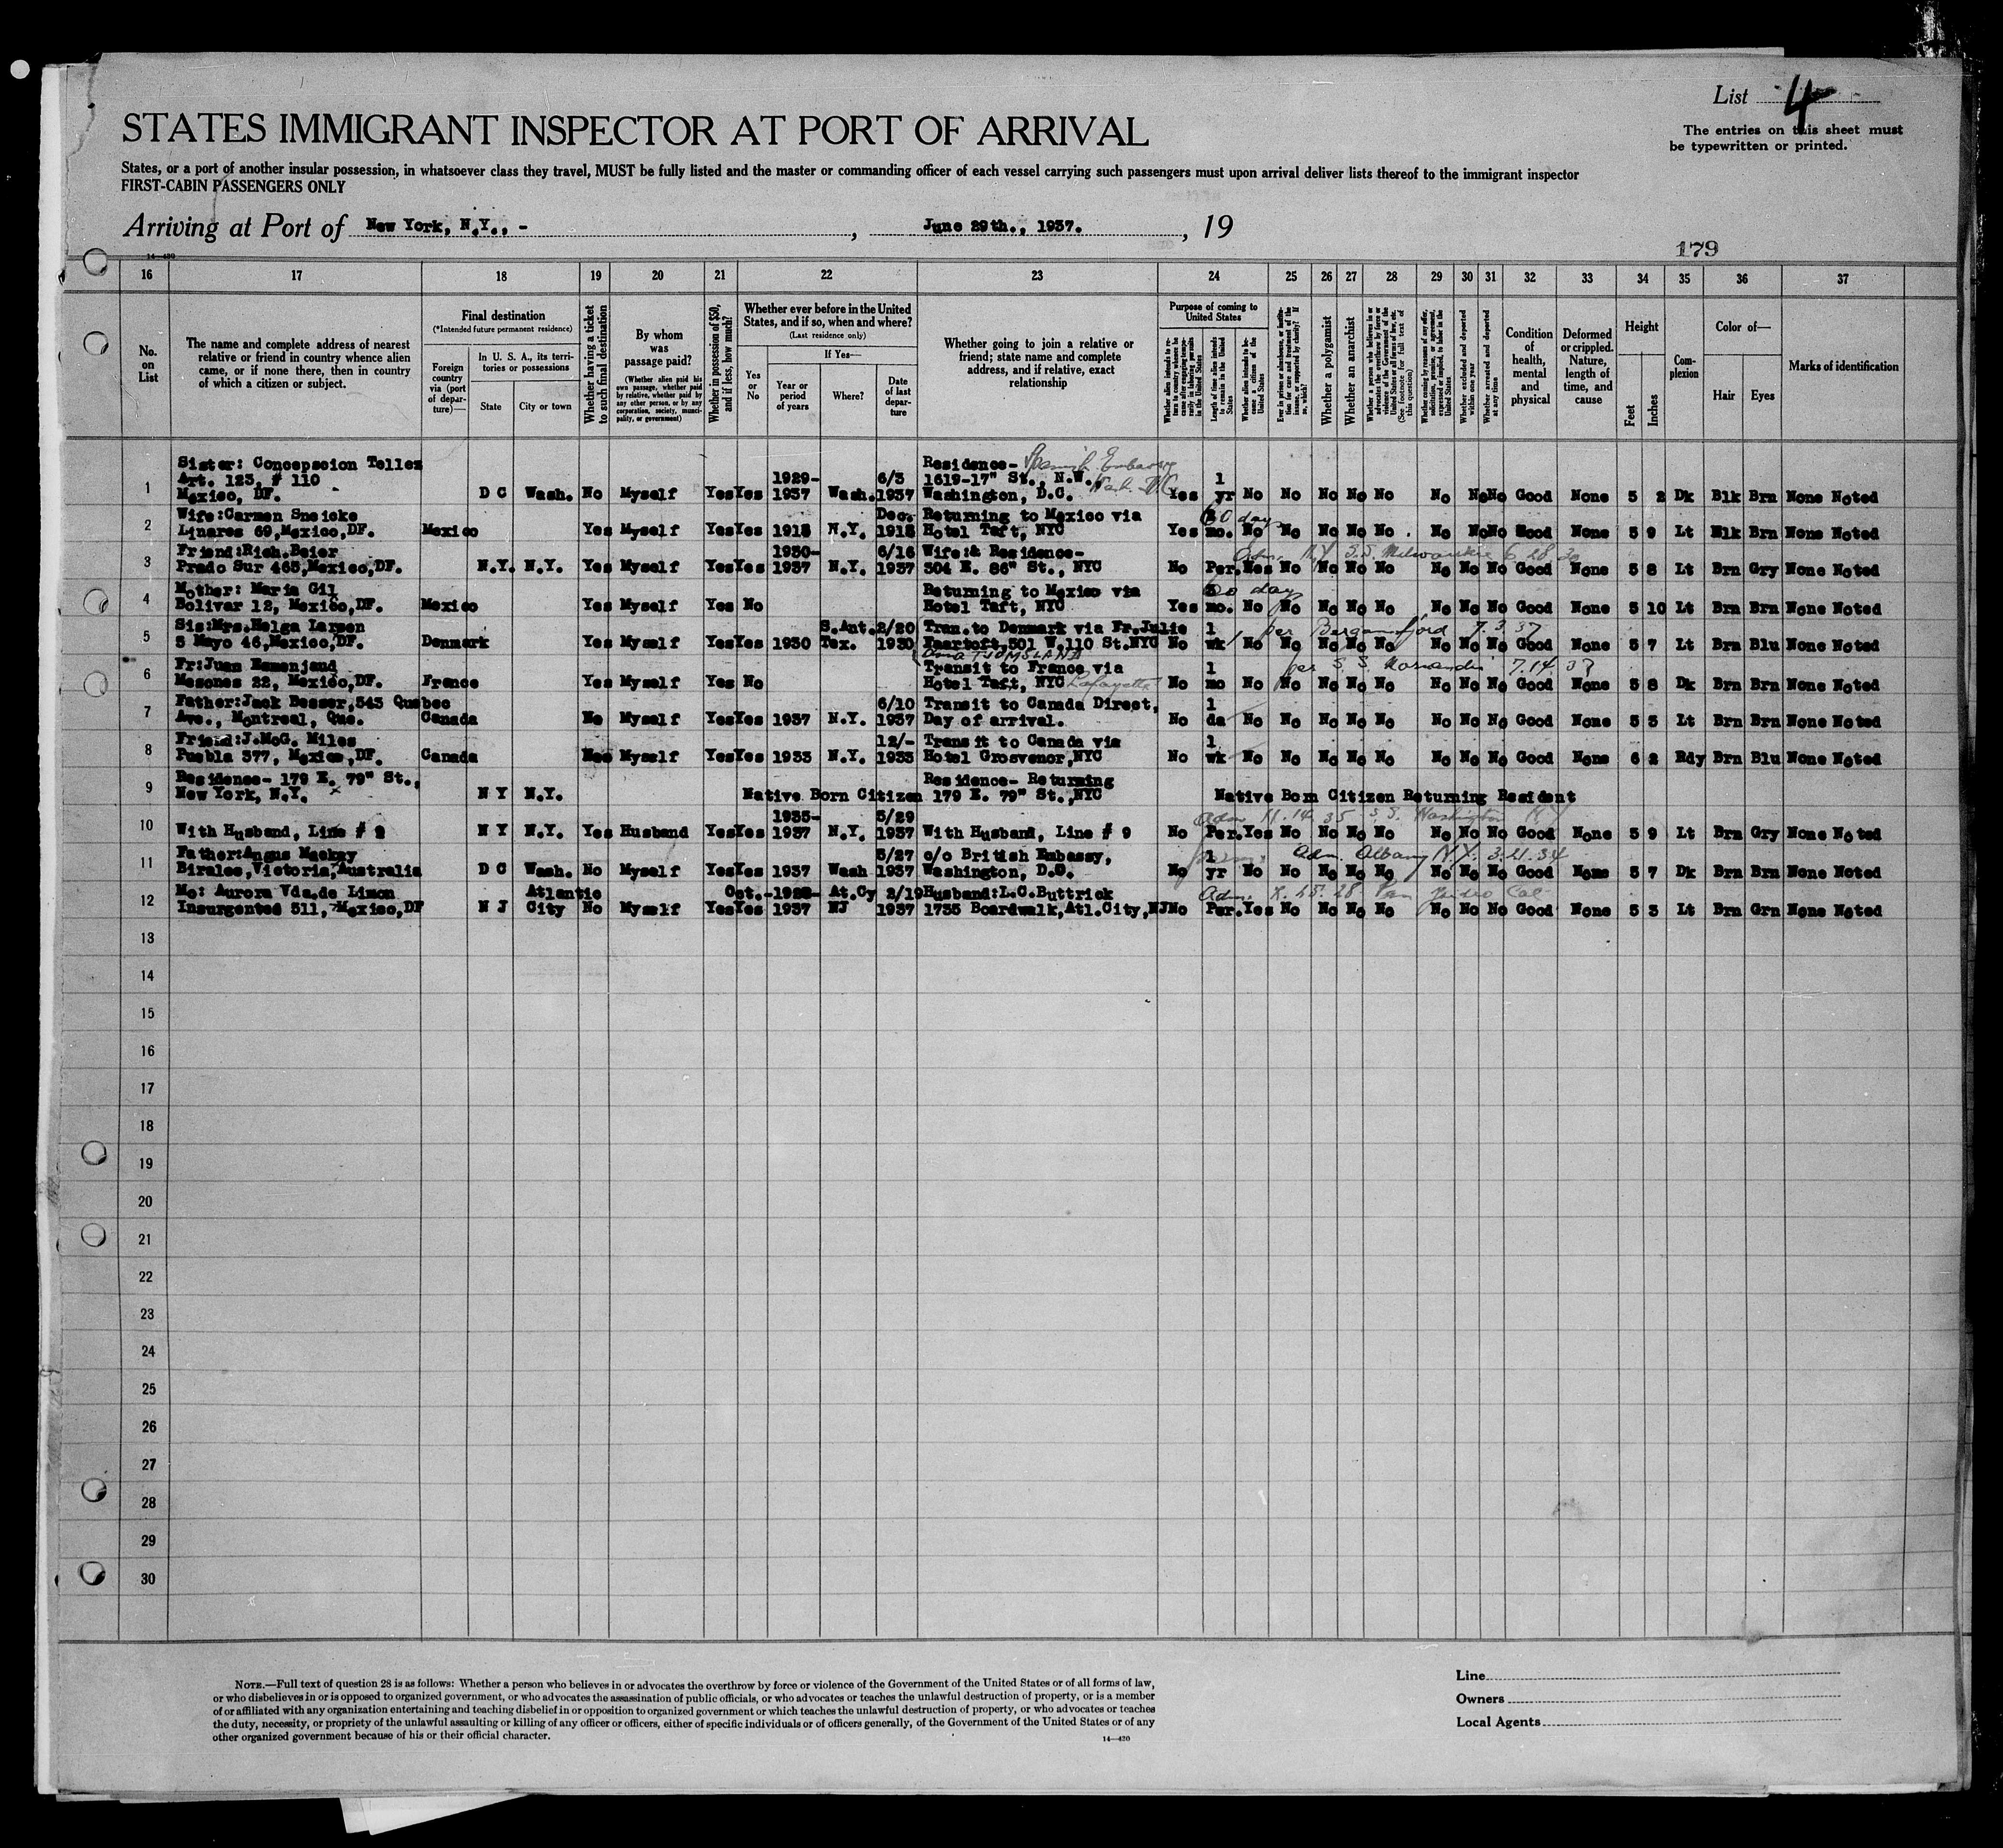 List 4
The entries on this sheet must
be typewritten or printed.
STATES IMMIGRANT INSPECTOR AT PORT OF ARRIVAL
States, or a port of another insular possession, in whatsoever class they travel, MUST be fully listed and the master or commanding officer of each vessel carrying such passengers must upon arrival deliver lists thereof to the immigrant inspector
FIRST-CABIN PASSENGERS ONLY
Arriving at Port of New York, N.Y., - , June 29th., 1937. , 19
179
14—430
16 17 18 19 20 21 22 23 24 25 26 27 28 29 30 31 32 33 34 35 36 37
No. on List
The name and complete address of nearest relative or friend in country whence alien came, or if none there, then in country of which a citizen or subject.
Final destination
(*Intended future permanent residence)
Foreign country via (port of departure)—
In U. S. A., its territories or possessions
State
City or town
Whether having a ticket to such final destination
By whom was passage paid?
(Whether alien paid his own passage, whether paid by relative, whether paid by any other person, or by any corporation, society, municipality, or government)
Whether in possession of $50, and if less, how much?
Whether ever before in the United States, and if so, when and where?
(Last residence only)
Yes or No
If Yes—
Year or period of years
Where?
Date of last departure
Whether going to join a relative or friend; state name and complete address, and if relative, exact relationship
Purpose of coming to United States
Length of time alien intends to remain in the United States
Whether alien intends to become a citizen of the United States
Whether a polygamist
Whether an anarchist
Whether excluded and deported within one year
Whether arrested and deported at any time
Condition of health, mental and physical
Deformed or crippled. Nature, length of time, and cause
Height
Feet
Inches
Complexion
Color of—
Hair
Eyes
Marks of identification
Sister: Concepscion Tellez Residence- Spanish Embassy
Art. 123, # 110 1929- 6/3 1619-17" St., N.W., Wash. D.C. 1
1 Mexico, DF. D C Wash. No Myself Yes Yes 1937 Wash. 1937 Washington, D.C. Yes yr No No No No No No No No Good None 5 2 Dk Blk Brn None Noted
Wife:Carmen Sneicke Dec. Returning to Mexico via 60 days
2 Linares 69,Mexico,DF. Mexico Yes Myself Yes Yes 1918 N.Y. 1918 Hotel Taft, NYC Yes mo. No No No No No No No No Good None 5 9 Lt Blk Brn None Noted
Friend:Rich.Beier 1930- 6/16 Wife:& Residence- Adm. N.Y. S.S. Milwaukee 6 28 30
3 Prado Sur 465,Mexico,DF. N.Y. N.Y. Yes Myself Yes Yes 1937 N.Y. 1937 304 E. 86" St., NYC No Per. Yes No No No No No No No Good None 5 8 Lt Brn Gry None Noted
Mother: Maria Gil Returning to Mexico via days
4 Bolivar 12, Mexico,DF. Mexico Yes Myself Yes No Hotel Taft, NYC Yes mo. No No No No No No No No Good None 5 10 Lt Brn Brn None Noted
Sis:Mrs.Helga Larsen S.Ant. 2/20 Tran.to Denmark via Fr.Julie 1 per Bergensfjord 7.3.37
5 5 Mayo 46,Mexico,DF. Denmark Yes Myself Yes Yes 1930 Tex. 1930 501 W.110 St.NYC No wk No No No No No No No No Good None 5 7 Lt Brn Blu None Noted
TJOMSLAND
Fr:Juan Esmenjaud Transit to France via 1 per S.S. Normandie 7.14 37
6 Mesones 22, Mexico,DF. France Yes Myself Yes No Hotel Taft, NYC Lafayette No mo No No No No No No No No Good None 5 8 Dk Brn Brn None Noted
Father:Jack Besser,545 Quebec 6/10 Transit to Canada Direct, 1
7 Ave., Montreal, Que. Canada No Myself Yes Yes 1937 N.Y. 1937 Day of arrival. No da No No No No No No No No Good None 5 3 Lt Brn Brn None Noted
Friend:J.McG. Miles 12/- Transit to Canada via 1
8 Puebla 377, Mexico,DF. Canada Myself Yes Yes 1933 N.Y. 1933 Hotel Grosvenor,NYC No wk No No No No No No No No Good None 6 2 Rdy Brn Blu None Noted
Residence- 179 E. 79" St., Residence- Returning
9 New York, N.Y. N Y N.Y. Native Born Citizen 179 E. 79" St.,NYC Native Born Citizen Returning Resident
1935- 5/29 Adm 11.14.35 S.S. Washington N.Y
10 With Husband, Line # 9 N Y N.Y. Yes Husband Yes Yes 1937 N.Y. 1937 With Husband, Line # 9 No Per. Yes No No No No No No No Good None 5 9 Lt Brn Gry None Noted
Father:Angus Mackay 5/27 c/o British Embassy, 1 Adm. Albany N.Y. 3.21.34
11 Biralee,Victoria,Australia D C Wash. No Myself Yes Yes 1937 Wash 1937 Washington, D.C. No yr No No No No No No No No Good None 5 7 Dk Brn Brn None Noted
Mo: Aurora Vda.de Limon Atlantic Oct.-1928- At.Cy 2/19 Husband:L.C.Buttrick Adm. San Pedro Cal
12 Insurgentes 511, Mexico,DF N J City No Myself Yes Yes 1937 NJ 1937 1735 Boardwalk,Atl.City,NJ No Per. Yes No No No No No No No Good None 5 3 Lt Brn Grn None Noted
13
14
15
16
17
18
19
20
21
22
23
24
25
26
27
28
29
30
NOTE.—Full text of question 28 is as follows: Whether a person who believes in or advocates the overthrow by force or violence of the Government of the United States or of all forms of law,
or who disbelieves in or is opposed to organized government, or who advocates the assassination of public officials, or who advocates or teaches the unlawful destruction of property, or is a member
of or affiliated with any organization entertaining and teaching disbelief in or opposition to organized government or which teaches the unlawful destruction of property, or who advocates or teaches
the duty, necessity, or propriety of the unlawful assaulting or killing of any officer or officers, either of specific individuals or of officers generally, of the Government of the United States or of any
other organized government because of his or their official character.
14—430
Line
Owners
Local Agents